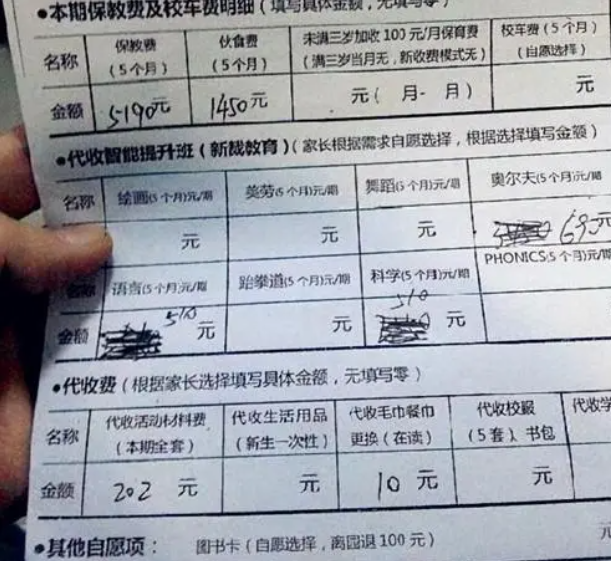 •本期保教费及校车费明细（填写具体金额，无填写零）
名称 保教费（5个月） 伙食费（5个月） 未满三岁加收100元/月保育费（满三岁当月无，新收费模式无） 校车费（5个月）（自愿选择）
金额 5190元 1450元 元（ 月- 月） 元
•代收智能提升班（新威教育）（家长根据需求自愿选择，根据选择填写金额）
名称 绘画(5个月)元/期 美劳(5个月)元/期 舞蹈(5个月)元/期 奥尔夫(5个月)元/期
元 元 元 690元
名称 语言(5个月)元/期 跆拳道(5个月)元/期 科学(5个月)元/期 PHONICS(5个月)元/期
金额 510元 元 510元
•代收费（根据家长选择填写具体金额，无填写零）
名称 代收活动材料费（本期全套） 代收生活用品（新生一次性） 代收毛巾餐巾更换（在读） 代收校服（5套）、书包 代收学
金额 202元 元 10元 元
•其他自愿项： 图书卡（自愿选择，离园退100元） 元